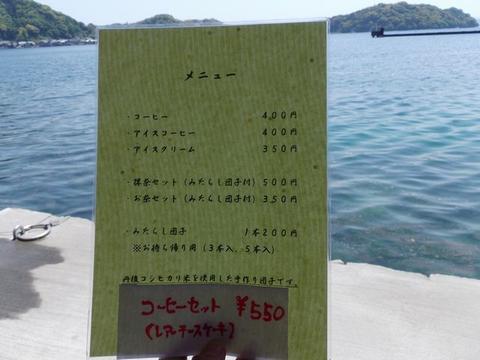 メニュー
・コーヒー 400円
・アイスコーヒー 400円
・アイスクリーム 350円
・抹茶セット（みたらし団子付）500円
・お茶セット（みたらし団子付）350円
・みたらし団子 1本200円
※お持ち帰り用（3本入、5本入）
丹後コシヒカリ米を使用した手作り団子です。
コーヒーセット ¥550
（レアーチーズケーキ）